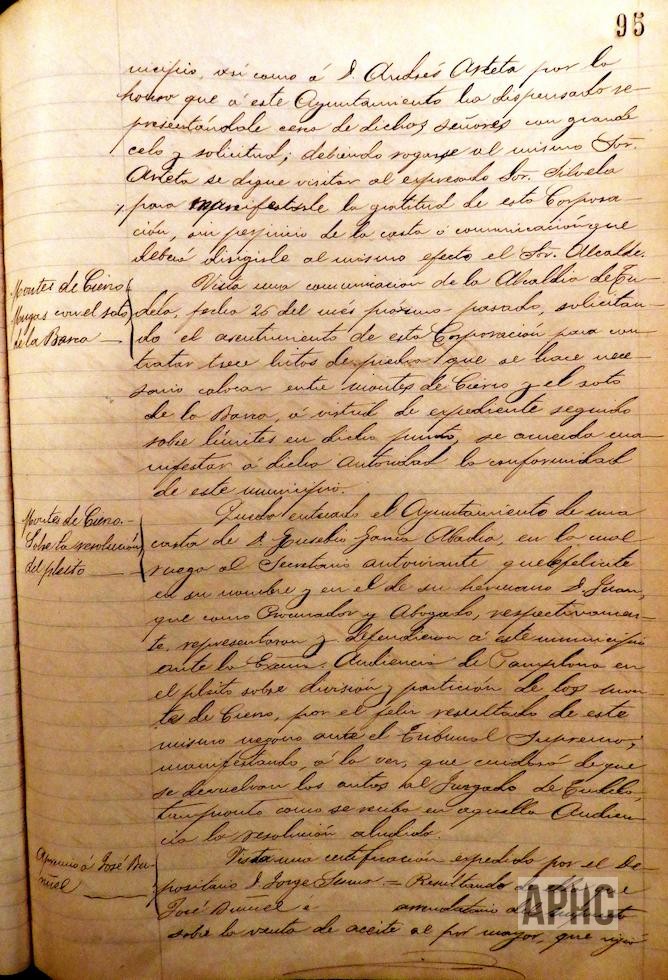 95
nicipio, así como á D. Andrés Arteta por la
honra que á este Ayuntamiento ha dispensado re-
presentándole cerca de dichos señores con grande
celo y solicitud; debiendo rogarse al mismo Sor.
Arteta se digne visitar al expresado Sor. Silvela
para manifestarle la gratitud de esta Corpora
ción, sin perjuicio de la carta ó comunicación que
deberá dirigirle al mismo efecto el Sor. Alcalde.
Montes de Cierzo
Mugas con el soto
de la Barca
Vista una comunicación de la Alcaldía de Tu-
dela, fecha 26 del mes próximo pasado, solicitan-
do el asentimiento de esta Corporación para con-
tratar trece hitos de piedra que se hace nece-
sario colocar entre montes de Cierzo y el soto
de la Barca, á virtud de expediente seguido
sobre límites en dicho punto, se acuerda ma-
nifestar á dicha autoridad la conformidad
de este municipio.
Montes de Cierzo.-
Sobre la resolución
del pleito
Quedó enterado el Ayuntamiento de una
carta de D. Eusebio García Abadía, en la cual
ruega al Secretario autorizante que felicite
en su nombre y en el de su hermano D. Juan,
que como Procurador y Abogado, respectivamen-
te, representaron y defendieron á este municipio
ante la Excma. Audiencia de Pamplona en
el pleito sobre división y partición de los mon-
tes de Cierzo, por el feliz resultado de este
mismo negocio ante el Tribunal Supremo;
manifestando, á la vez, que cuidará de que
se devuelvan los autos al Juzgado de Tudela,
tan pronto como se reciba en aquella Audien-
cia la resolución aludida.
Apremio á José Bu-
ñuel
Vista una certificación expedida por el De-
positario D. Jorge Sesma = Resultando
José Buñuel é arrendatario del
sobre la venta de aceite al por mayor, que rigió
APHC